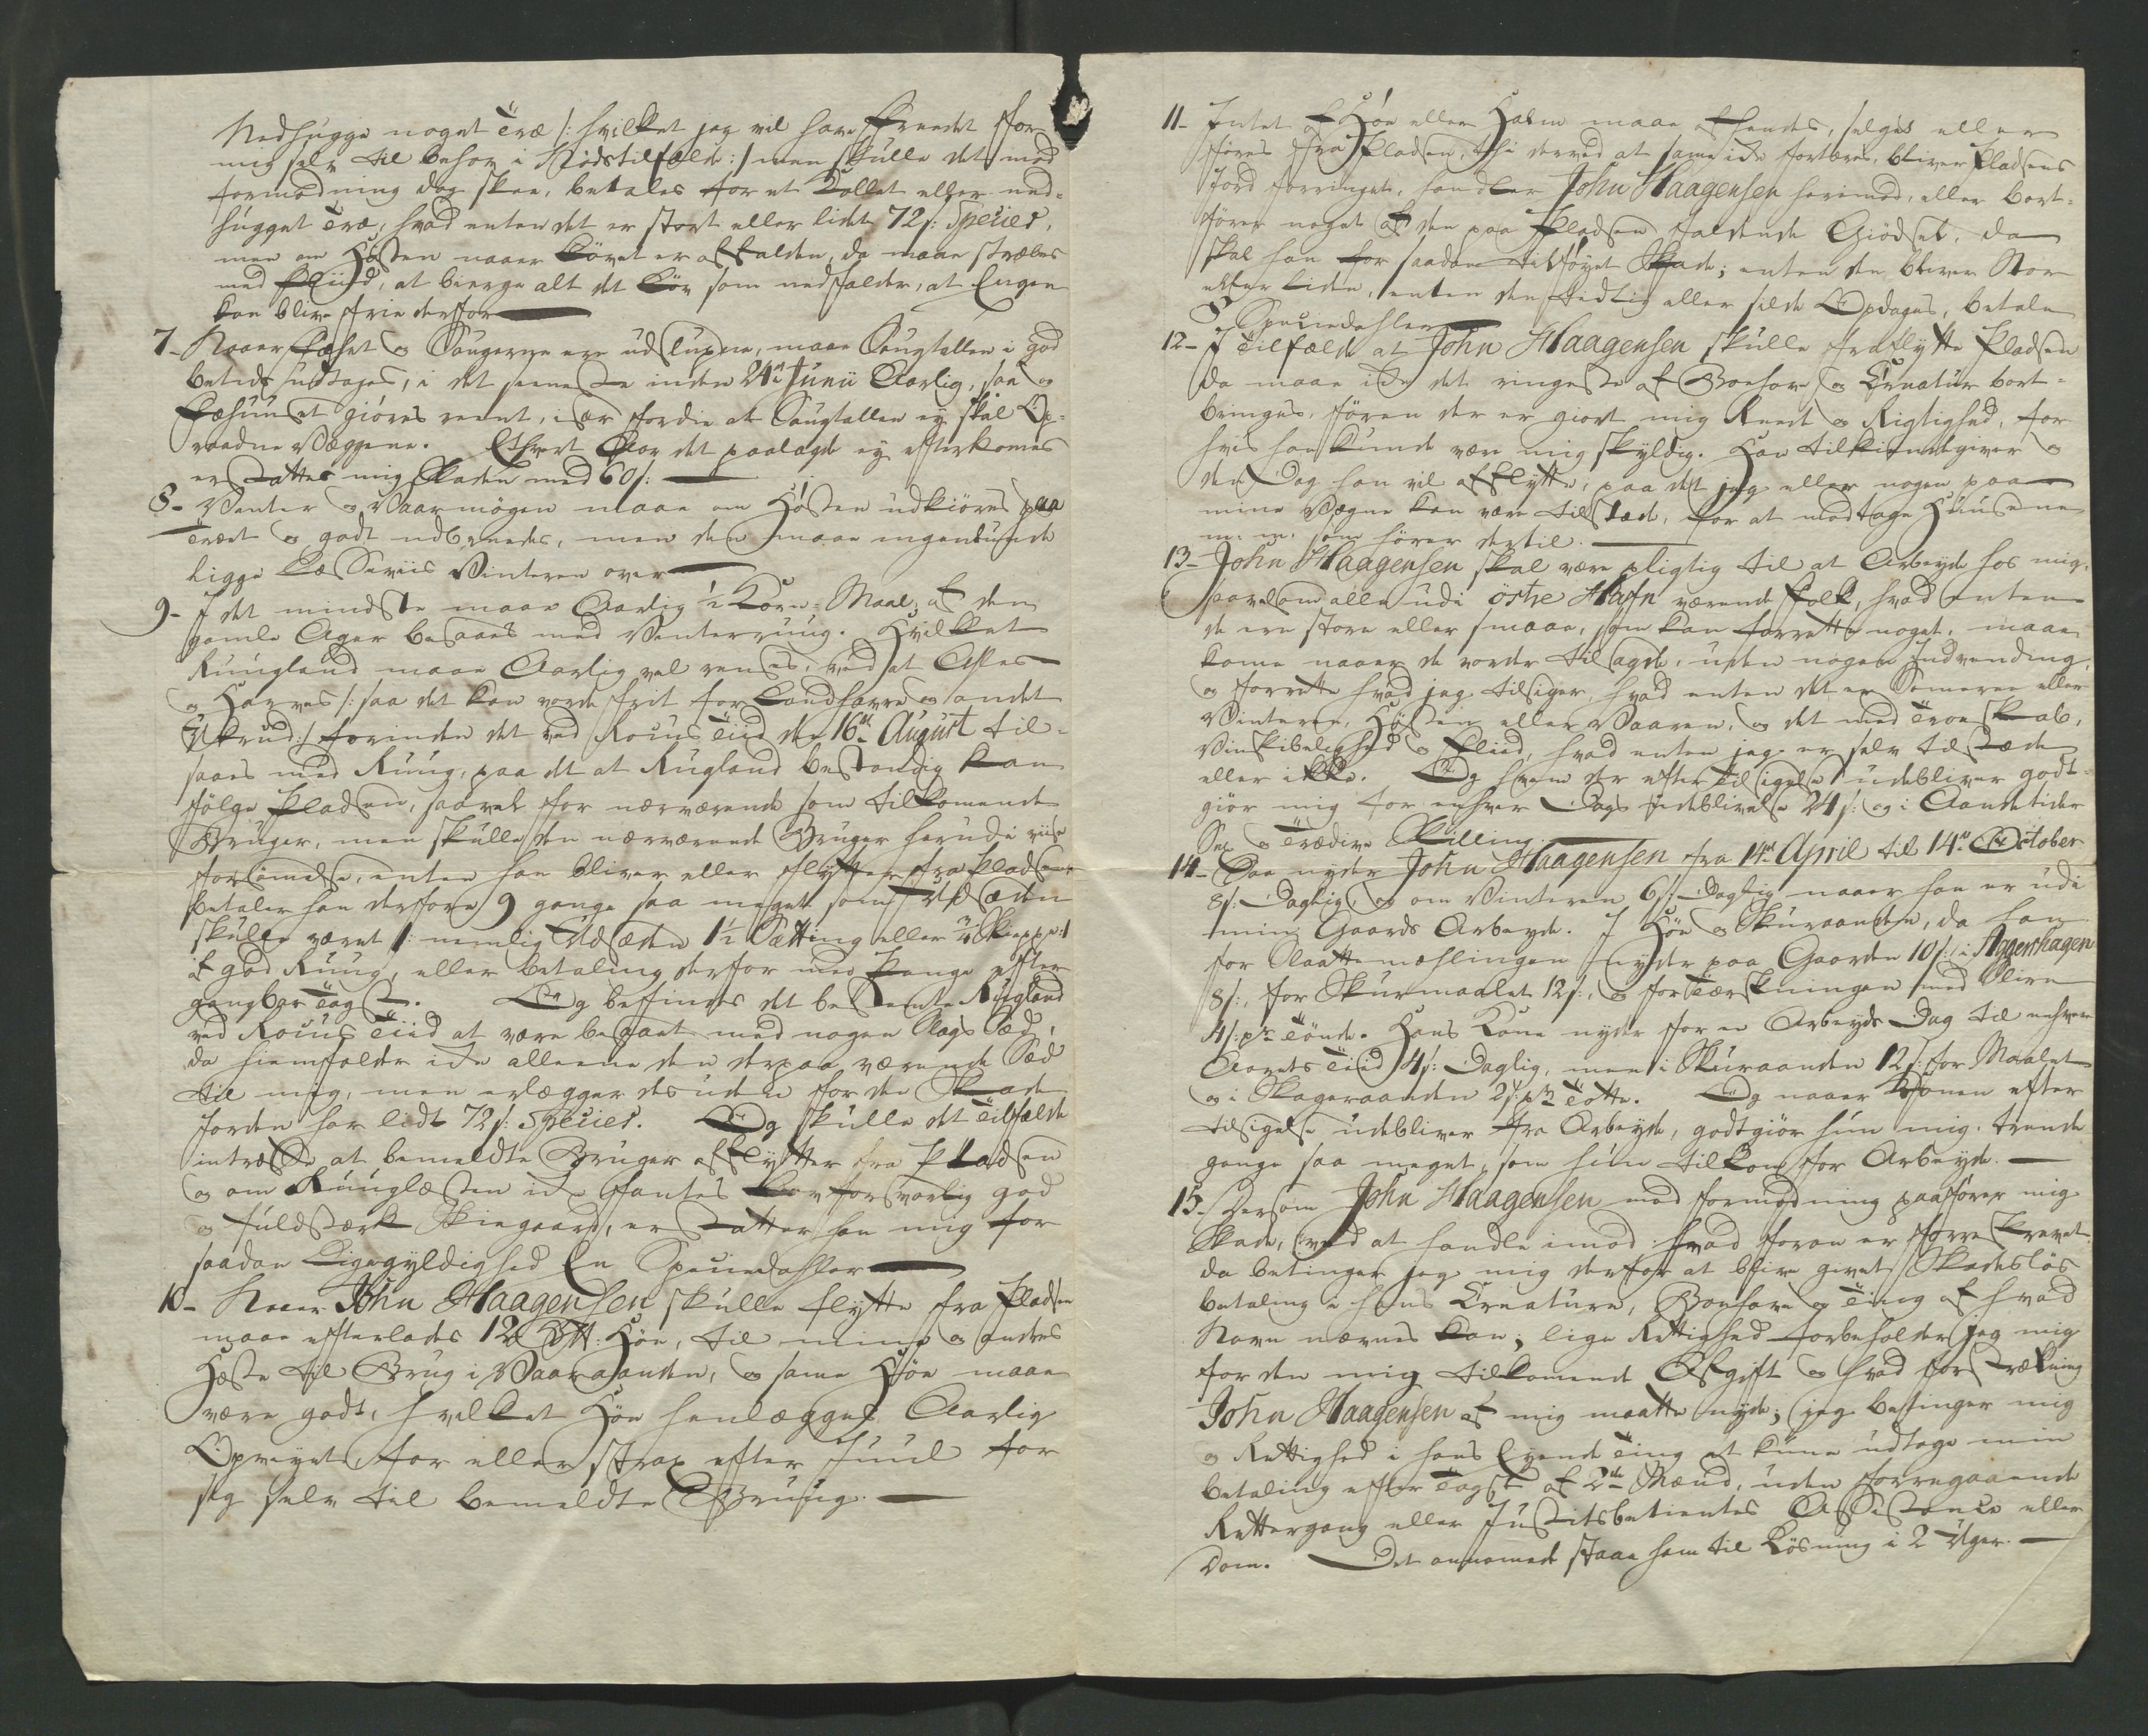 Nedhugge noget Træ /: hvilket jeg vil have freedet for
mig selv til behov i Nødstilfælde :/ men skulle det mod
formodning dog skee, betales for et Kollet eller ned-
hugget Træ, hvad enten det er stort eller lidet 72 s: Species,
men om Høsten naaer Løvet er affalden, da maae stræbes
med Fliid, at bierge alt det Løv som nedfalder, at Engen
kan blive frie derfor
7- Naaer Fæhet og Saugerne ere udslupne, maae Saugtallen i god
betids udtages, i det seeneste inden 24de Junii Aarlig, saa og
Fæhuuset giøres reent, især fordie at Saugtallen ey skal Op-
raadne Væggene. Ethvert Aar det paalagde ey efterkomes
erstattes mig Skaden med 60 s:
8- Venter og Vaarmøgen maae om Høsten udkiøres paa
Træet og godt udbreedes, men den maae ingenlunde
ligge Læsseviis Vinteren over
9- I det mindste maae Aarlig ½ Korn-Maal, af den
gamle Ager besaaes med Venterruug. Hvilket
Ruugland maae Aarlig vel renses, ved at Ales
og Harves /: saa det kan vorde frit for Landhavre og andet
Ukrud :/ forinden det ved Rocus Tiid den 16de August til-
saaes med Ruug, paa det at Rugland bestandig kan
følge Pladsen, saavel for nærværende som tilkomende
Bruger, men skulle den nærværende Bruger herudi viise
forsømelse, enten han bliver eller flytter fra Pladsen
betaler han derfore 9 gange saa meget som Udsæden
skulle været /: nemlig Udsæden 1½ Sætting eller ¾ Skieppe :/
af god Ruug, eller betaling derfor med Penge efter
gangbar Tagst. Og befindes det bestemte Rugland
ved Rocus Tiid at være besaaet med nogen Slags Sæd,
da hiemfalder ikke alleene den derpaa værende Sæd
til mig, men erlægger desuden for den Skade
Jorden har lidt 72 s: Species. Og skulle det Tilfælde
intræffe at bemeldte Bruger afflytter fra Pladsen
og om Ruuglæsten ikke fantes Lovforsvarlig god
og fuldstærk Skiegaard, erstatter han mig for
saadan Ligegyldighed En Speciedahler
10- Naaer John Haagensen skulle flytte fra Pladsen
maae efterlades 12 B℔: Høe, til mine og andres
Heste til Brug i Vaaraanden, og same Høe maae
være godt, hvilket Høe henlægges Aarlig
Opveyet for eller strax efter Juul for
sig selv til bemeldte Bruug.
11- Intet af Høe eller Halm maae afhendes, selges eller
føres fra Pladsen, thi derved at same ikke fortæres, bliver Pladsens
Jord forringet, handler John Haagensen herimod, eller bort-
fører noget af den paa Pladsen faldende Giødsel, da
skal han for saadan tilføyet Skade; enten den bliver Stor
eller liden, enten den tidlig eller silde Opdages, betale
5 Speciedahler
12- I Tilfælde at John Haagensen skulle fraflytte Pladsen
da maae ikke det ringeste af Boehave og Creatur bort-
bringes, føren der er giort mig Reed og Rigtighed, for
hvis han kunde være mig skyldig. Han tilkiendegiver og
den Dag han vil afflytte, paa det jeg eller nogen paa
mine Vægne kan være tilstæde, for at modtage Huusene
m: m: som hører dertil.
13- John Haagensen skal være pligtig til at Arbeyde hos mig,
saavelsom alle udi østre Hafn værende Folk, hvad enten
de ere store eller smaae, som kan forrette noget, maae
kome naaer de vorder tilsagde, uden nogen Indvending,
og forrette hvad jeg tilsiger, hvad enten det er Someren eller
Vinteren, Høsten eller Vaaren, og det med Troeskab,
Vinskibelighed og Fliid, hvad enten jeg er selv tilstæde
eller ikke. Og hvem der efter Tilsigelse udebliver godt-
giør mig for enhver Dags Udeblivelse 24 s: og i Aandetider
Sex og Trædive Skilling
14- Saa nyder John Haagensen fra 14de April til 14de October
8 s: Daglig, og om Vinteren 6 s: Daglig naaer han er udi
min Gaards Arbeyde. I Høe og Skuraanden, da han
for Slaattemæhlingen nyder paa Gaarden 10 s: i Aggerhagen
8 s:, for Skurmaalet 12 s:, og for Tærskningen med Sliro
4 s: pr Tønde. Hans Kone nyder for en Arbeyds Dag til enhver
Aarets Tiid 4 s: Daglig, men i Skuraanden 12 s: for Maalet
og i Skageraanden 2 s: pr Totte. Og naaer Konen efter
tilsigelse udebliver fra Arbeyde, godtgiør hun mig trende
gange saa meget, som hun tilkom for Arbeyde.
15- Dersom John Haagensen mod formodning paafører mig
Skade, ved at handle imod hvad foran er forreskrevet
da betinger jeg mig derfor at blive givet Skadesløs
betaling i hans Creature, Boehave og Ting af hvad
Navn nævnes kan; lige Rettighed forbeholder jeg mig
for den mig tilkomende Afgift og hvad forstrækning
John Haagensen af mig maatte nyde; jeg betinger mig
og Rettighed i hans Eyende Ting at kune udtage min
betaling efter Tagst af 2de Mænd, uden forregaaende
Rettergang eller Justitsbetientes Assistence eller
Dom. Det annamede staae ham til Løsning i 2 Uger.